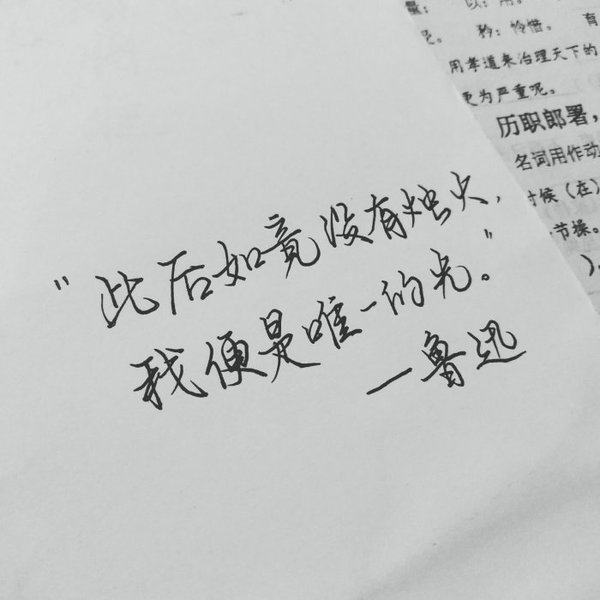 量： 以：用。
矜：怜惜。 有
用孝道来治理天下的
更为严重呢。
历职郎署，
名词用作动
时候（在）
节操。
），
“此后如竟没有炬火，
我便是唯一的光。”
—鲁迅